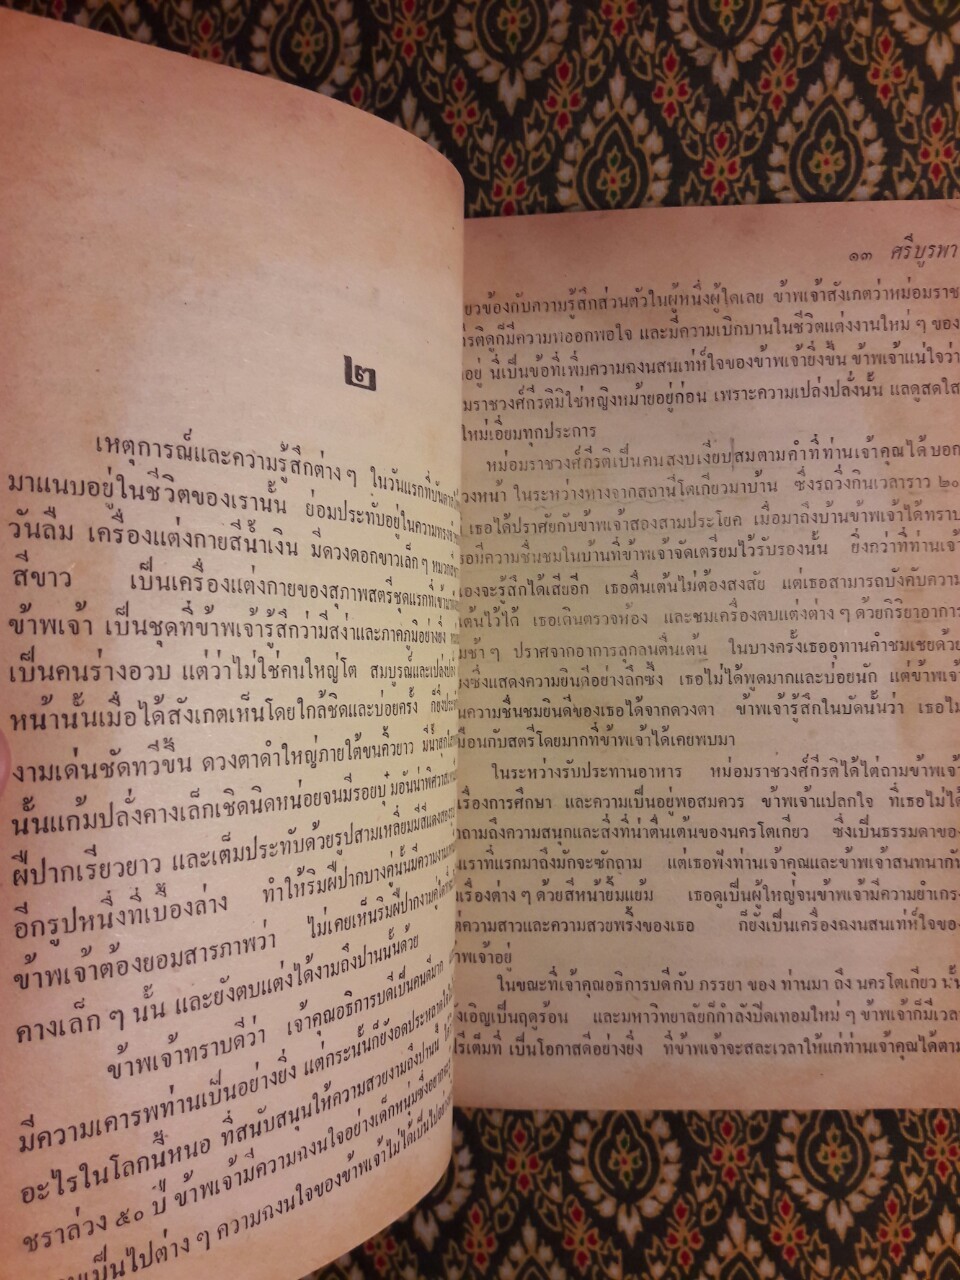 ๒
เหตุการณ์และความรู้สึกต่าง ๆ ในวันแรกที่บันดาล
มาแนบอยู่ในชีวิตของเรานั้น ย่อมประทับอยู่ในความทรงจำ
วันลืม เครื่องแต่งกายสีน้ำเงิน มีดวงดอกขาวเล็ก ๆ หมวก
สีขาว เป็นเครื่องแต่งกายของสุภาพสตรีชุดแรกที่เข้ามา
ข้าพเจ้า เป็นชุดที่ข้าพเจ้ารู้สึกว่ามีสง่าและภาคภูมิอย่างยิ่ง
เป็นคนร่างอวบ แต่ว่าไม่ใช่คนใหญ่โต สมบูรณ์และเปล่งปลั่ง
หน้านั้นเมื่อได้สังเกตเห็นโดยใกล้ชิดและบ่อยครั้ง ก็ยิ่ง
งามเด่นชัดทวีขึ้น ดวงตาดำใหญ่ภายใต้ขนคิ้วยาว
นั้นแก้มปลั่งคางเล็กเชิดนิดหน่อยจนมีรอยบุ๋ม
ฝีปากเรียวยาว และเต็มประทับด้วยรูปสามเหลี่ยมมีสีแดง
อีกรูปหนึ่งที่เบื้องล่าง ทำให้ริมฝีปากบางคู่นั้นมีความงาม
ข้าพเจ้าต้องยอมสารภาพว่า ไม่เคยเห็นริมฝีปากงามคู่ใด
คางเล็ก ๆ นั้น และยังตบแต่งได้งามถึงปานนั้นด้วย
ข้าพเจ้าทราบดีว่า เจ้าคุณอธิการบดีเป็นคนดีมาก
มีความเคารพท่านเป็นอย่างยิ่ง แต่กระนั้นก็ยังอดประหลาดใจ
อะไรในโลกนี้หนอ ที่สนับสนุนให้ความสวยงามถึงปานนี้
ชราล่วง ๕๐ ปี ข้าพเจ้ามีความฉงนใจอย่างเด็กหนุ่มซึ่งอยาก
เป็นไปต่าง ๆ ความฉงนใจของข้าพเจ้าไม่ได้เป็นไป
๑๓ ศรีบูรพา
ยวข้องกับความรู้สึกส่วนตัวในผู้หนึ่งผู้ใดเลย ข้าพเจ้าสังเกตว่าหม่อมราช
กีรติดูก็มีความพออกพอใจ และมีความเบิกบานในชีวิตแต่งงานใหม่ ๆ ของ
อยู่ นี่เป็นข้อที่เพิ่มความฉงนสนเท่ห์ใจของข้าพเจ้ายิ่งขึ้น ข้าพเจ้าแน่ใจว่า
มราชวงศ์กีรติมิใช่หญิงหม้ายอยู่ก่อน เพราะความเปล่งปลั่งนั้น แลดูสดใส
ใหม่เอี่ยมทุกประการ
หม่อมราชวงศ์กีรติเป็นคนสงบเงี่ยบสมตามคำที่ท่านเจ้าคุณได้บอก
วงหน้า ในระหว่างทางจากสถานีโตเกียวมาบ้าน ซึ่งรถวิ่งกินเวลาราว ๒๐
เธอได้ปราศัยกับข้าพเจ้าสองสามประโยค เมื่อมาถึงบ้านข้าพเจ้าได้ทราบ
อมีความชื่นชมในบ้านที่ข้าพเจ้าจัดเตรียมไว้รับรองนั้น ยิ่งกว่าที่ท่านเจ้า
เองจะรู้สึกได้เสียอีก เธอตื่นเต้นไม่ต้องสงสัย แต่เธอสามารถบังคับความ
เต้นไว้ได้ เธอเดินตรวจห้อง และชมเครื่องตบแต่งต่าง ๆ ด้วยกิริยาอาการ
มช้า ๆ ปราศจากอาการลุกลนตื่นเต้น ในบางครั้งเธออุทานคำชมเชยด้วย
งซึ่งแสดงความยินดีอย่างลึกซึ้ง เธอไม่ได้พูดมากและบ่อยนัก แต่ข้าพเจ้า
นความชื่นชมยินดีของเธอได้จากดวงตา ข้าพเจ้ารู้สึกในบัดนั้นว่า เธอไม่
มือนกับสตรีโดยมากที่ข้าพเจ้าได้เคยพบมา
ในระหว่างรับประทานอาหาร หม่อมราชวงศ์กีรติได้ไต่ถามข้าพเจ้า
เรื่องการศึกษา และความเป็นอยู่พอสมควร ข้าพเจ้าแปลกใจ ที่เธอไม่ได้
ถามถึงความสนุกและสิ่งที่น่าตื่นเต้นของนครโตเกียว ซึ่งเป็นธรรมดาของ
นเราที่แรกมาถึงมักจะซักถาม แต่เธอฟังท่านเจ้าคุณและข้าพเจ้าสนทนากัน
เรื่องต่าง ๆ ด้วยสีหน้ายิ้มแย้ม เธอดูเป็นผู้ใหญ่จนข้าพเจ้ามีความยำเกรง
ต่ความสาวและความสวยพริ้งของเธอ ก็ยังเป็นเครื่องฉงนสนเท่ห์ใจของ
าพเจ้าอยู่
ในขณะที่เจ้าคุณอธิการบดีกับ ภรรยา ของ ท่านมา ถึง นครโตเกียว นั้น
งเอิญเป็นฤดูร้อน และมหาวิทยาลัยก็กำลังปิดเทอมใหม่ ๆ ข้าพเจ้าก็มีเวลา
รีเต็มที่ เป็นโอกาสดีอย่างยิ่ง ที่ข้าพเจ้าจะสละเวลาให้แก่ท่านเจ้าคุณได้ตาม